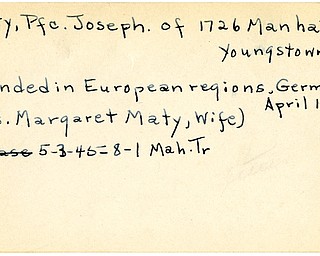 ty, Pfc. Joseph. of 1726 Manha
Youngstown
nded in European regions, Germ
April 1
s. Margaret Maty, Wife)
ase 5-3-45=8-1 Mah. Tr